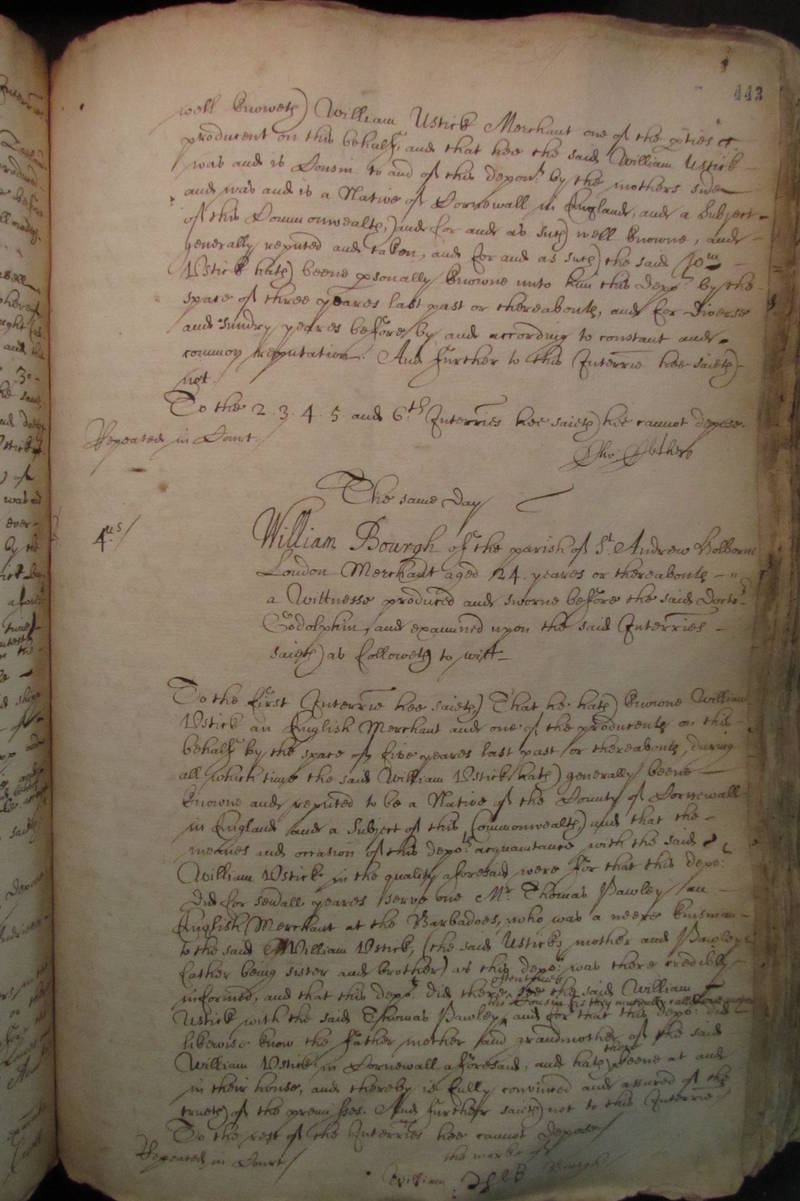 443
well knoweth) William Ustick Merchant one of the pties
producent on this behalf, and that hee the said William Ustick
was and is Cousin to and of this depont by the mothers side
and was and is a Native of Cornewall in England, and a Subject
of this Commonwealth, and for and as such well knowne, and
generally reputed and taken, and for and as such the said Wm
Ustick hath beene psonally knowne unto him this depot by the
space of three yeares last past or thereabouts, and for diverse
and sundry yeares before by and according to constant and
common reputation. And further to this Interrie hee saieth
not.
To the 2. 3. 4. 5 and 6th Interries hee saieth hee cannot depose.
Repeated in Court.
Tho:
The same Day
4us/
William Bourgh of the parish of St. Andrew Holborne
London Merchant aged 24 yeares or thereabouts
a Wittnesse produced and sworne before the said Doctor
Godolphin, and examined upon the said Interries
saieth as followeth to witt
To the first Interrie hee saieth That he hath knowne William
Ustick an English Merchant and one of the producents on this
behalf by the space of five yeares last past or thereabouts, during
all which time the said William Ustick hath generally beene
knowne and reputed to be a Native of the County of Cornewall
in England and a Subject of this Commonwealth and that the
meanes and occasion of this depots acquaintance with the said
William Ustick in the quality aforesaid were for that this depot
did for sevall yeares serve one Mr. Thomas Pawley an
English Merchant at the Barbadoes, who was a neere kinsman
to the said William Ustick, (the said Usticks mother and Pawleys
father being sister and brother) as this depot was there credibly
informed, and that this depot did there oftentimes see the said William
Ustick with the said Thomas Pawley his Cousin as they usually called and for that this depot did
likewise know the father mother and grandmother of the said
William Ustick in Cornewall aforesaid, and hath there beene at and
in their house, and thereby is fully convinced and assured of the
trueth of the premisses. And further saieth not to this Interrie
To the rest of the Interries hee cannot depose
Repeated in Court/
the marke of
William Bourgh